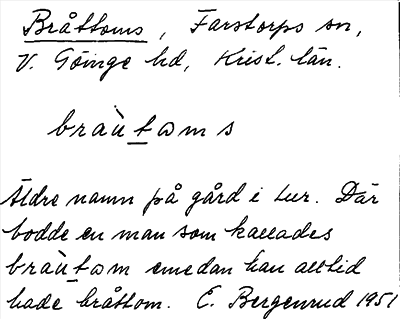 Bråttoms, Farstorps sn,
V. Göinge hd, Krist. län.
bràu̇tams
Äldre namn på gård i Lur. Där
bodde en man som kallades
bràu̇tam emedan han alltid
hade bråttom. E. Bergenrud 1951